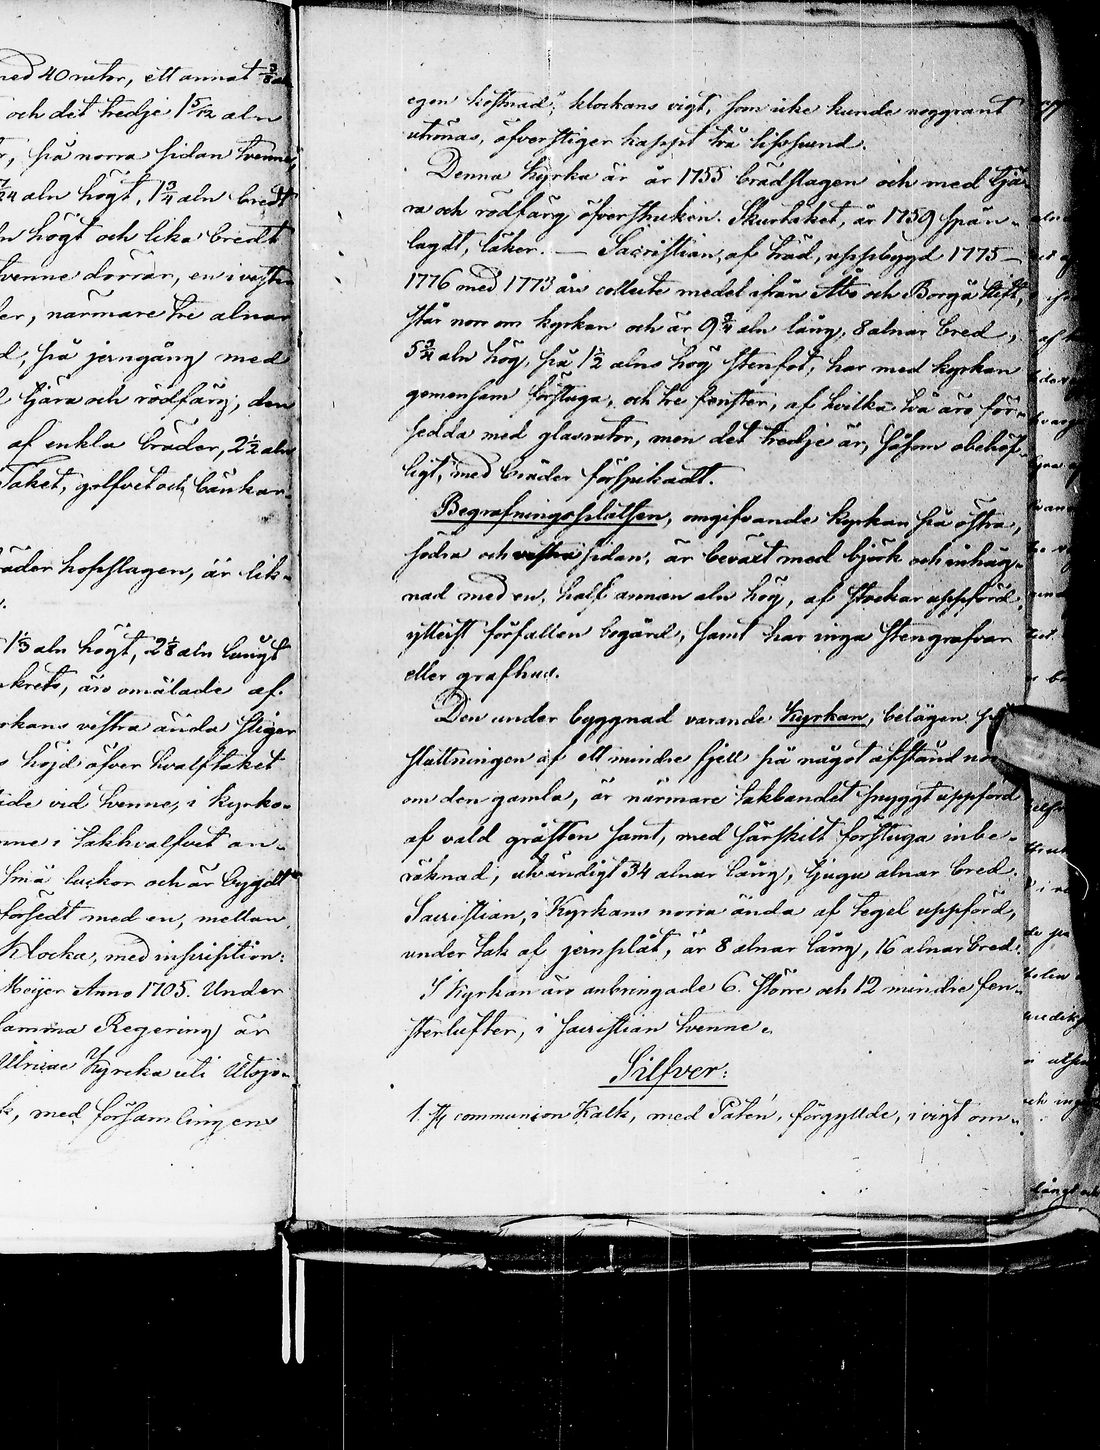 ned 40 rutor, ett annat 3/8 aln
och det tredje 1 5/12 aln
, på norra sidan tvenne
7/24 aln högt, 1 3/4 aln bredt
högt och lika bredt
tvenne dörrar, en i vestra
er, närmare tre alnar
d, på jerngång med
tjära och rödfärg, den
af enkla bräder, 2 1/2 aln
Taket, golfvet och bänkar
äder hopslagen, är lik-
1 1/3 aln högt, 2 1/8 aln långt
krets, äro omålade af
rkans vestra ända stiger
höjd öfver hvalftaket
ide vid tvenne, i kyrko-
nne i takhvalfvet an-
små luckor och är bygdt
försedt med en, mellan
Klocka, med inskription:
Meijer Anno 1705. Under
samma Regering är
Ulricae Kyrcka uti Utsjo-
, med församlingens
egen kostnad"; klockans vigt, som icke kunde noggrant
utrönas, öfverstiger knappt två lispund.
Denna Kyrka är år 1755 brädslagen och med tjä-
ra och rödfärg öfverstruken. Skurtaket, år 1759 spån-
lagdt, läker. — Sacristian, af träd, uppbygd 1775—
1776 med 1773 års collecte medel ifrån Åbo och Borgå Stift,
står norr om kyrkan och är 9 3/4 aln lång, 8 alnar bred,
5 3/4 aln hög, på 1 1/2 alns hög stenfot, har med kyrkan
gemensam förstuga, och tre fenster, af hvilka två äro för-
sedda med glasrutor, men det tredje är, såsom obehöf-
ligt, med bräder förspikadt.
Begrafningsplatsen, omgifvande kyrkan på östra,
södra och vestra sidan, är beväxt med björk och inhäg-
nad med en, half annan aln hög, af stockar uppförd,
ytterst förfallen begärd, samt har inga stengrafvar
eller grafhus.
Den under byggnad varande Kyrkan, belägen på
sluttningen af ett mindre fjell på något afstånd norr
om den gamla, är närmare takbandet snyggt uppförd
af vald gråsten samt, med särskilt förstuga inbe-
räknad, utvändigt 34 alnar lång, tjugu alnar bred.
Sacristian, i Kyrkans norra ända af tegel uppförd,
under tak af jernplåt, är 8 alnar lång, 16 alnar bred.
I Kyrkan äro anbringade 6 större och 12 mindre fen-
sterlufter, i sacristian tvenne.
Silfver:
1. St communion Kalk, med Patén, förgyllde, i vigt om-
långt och